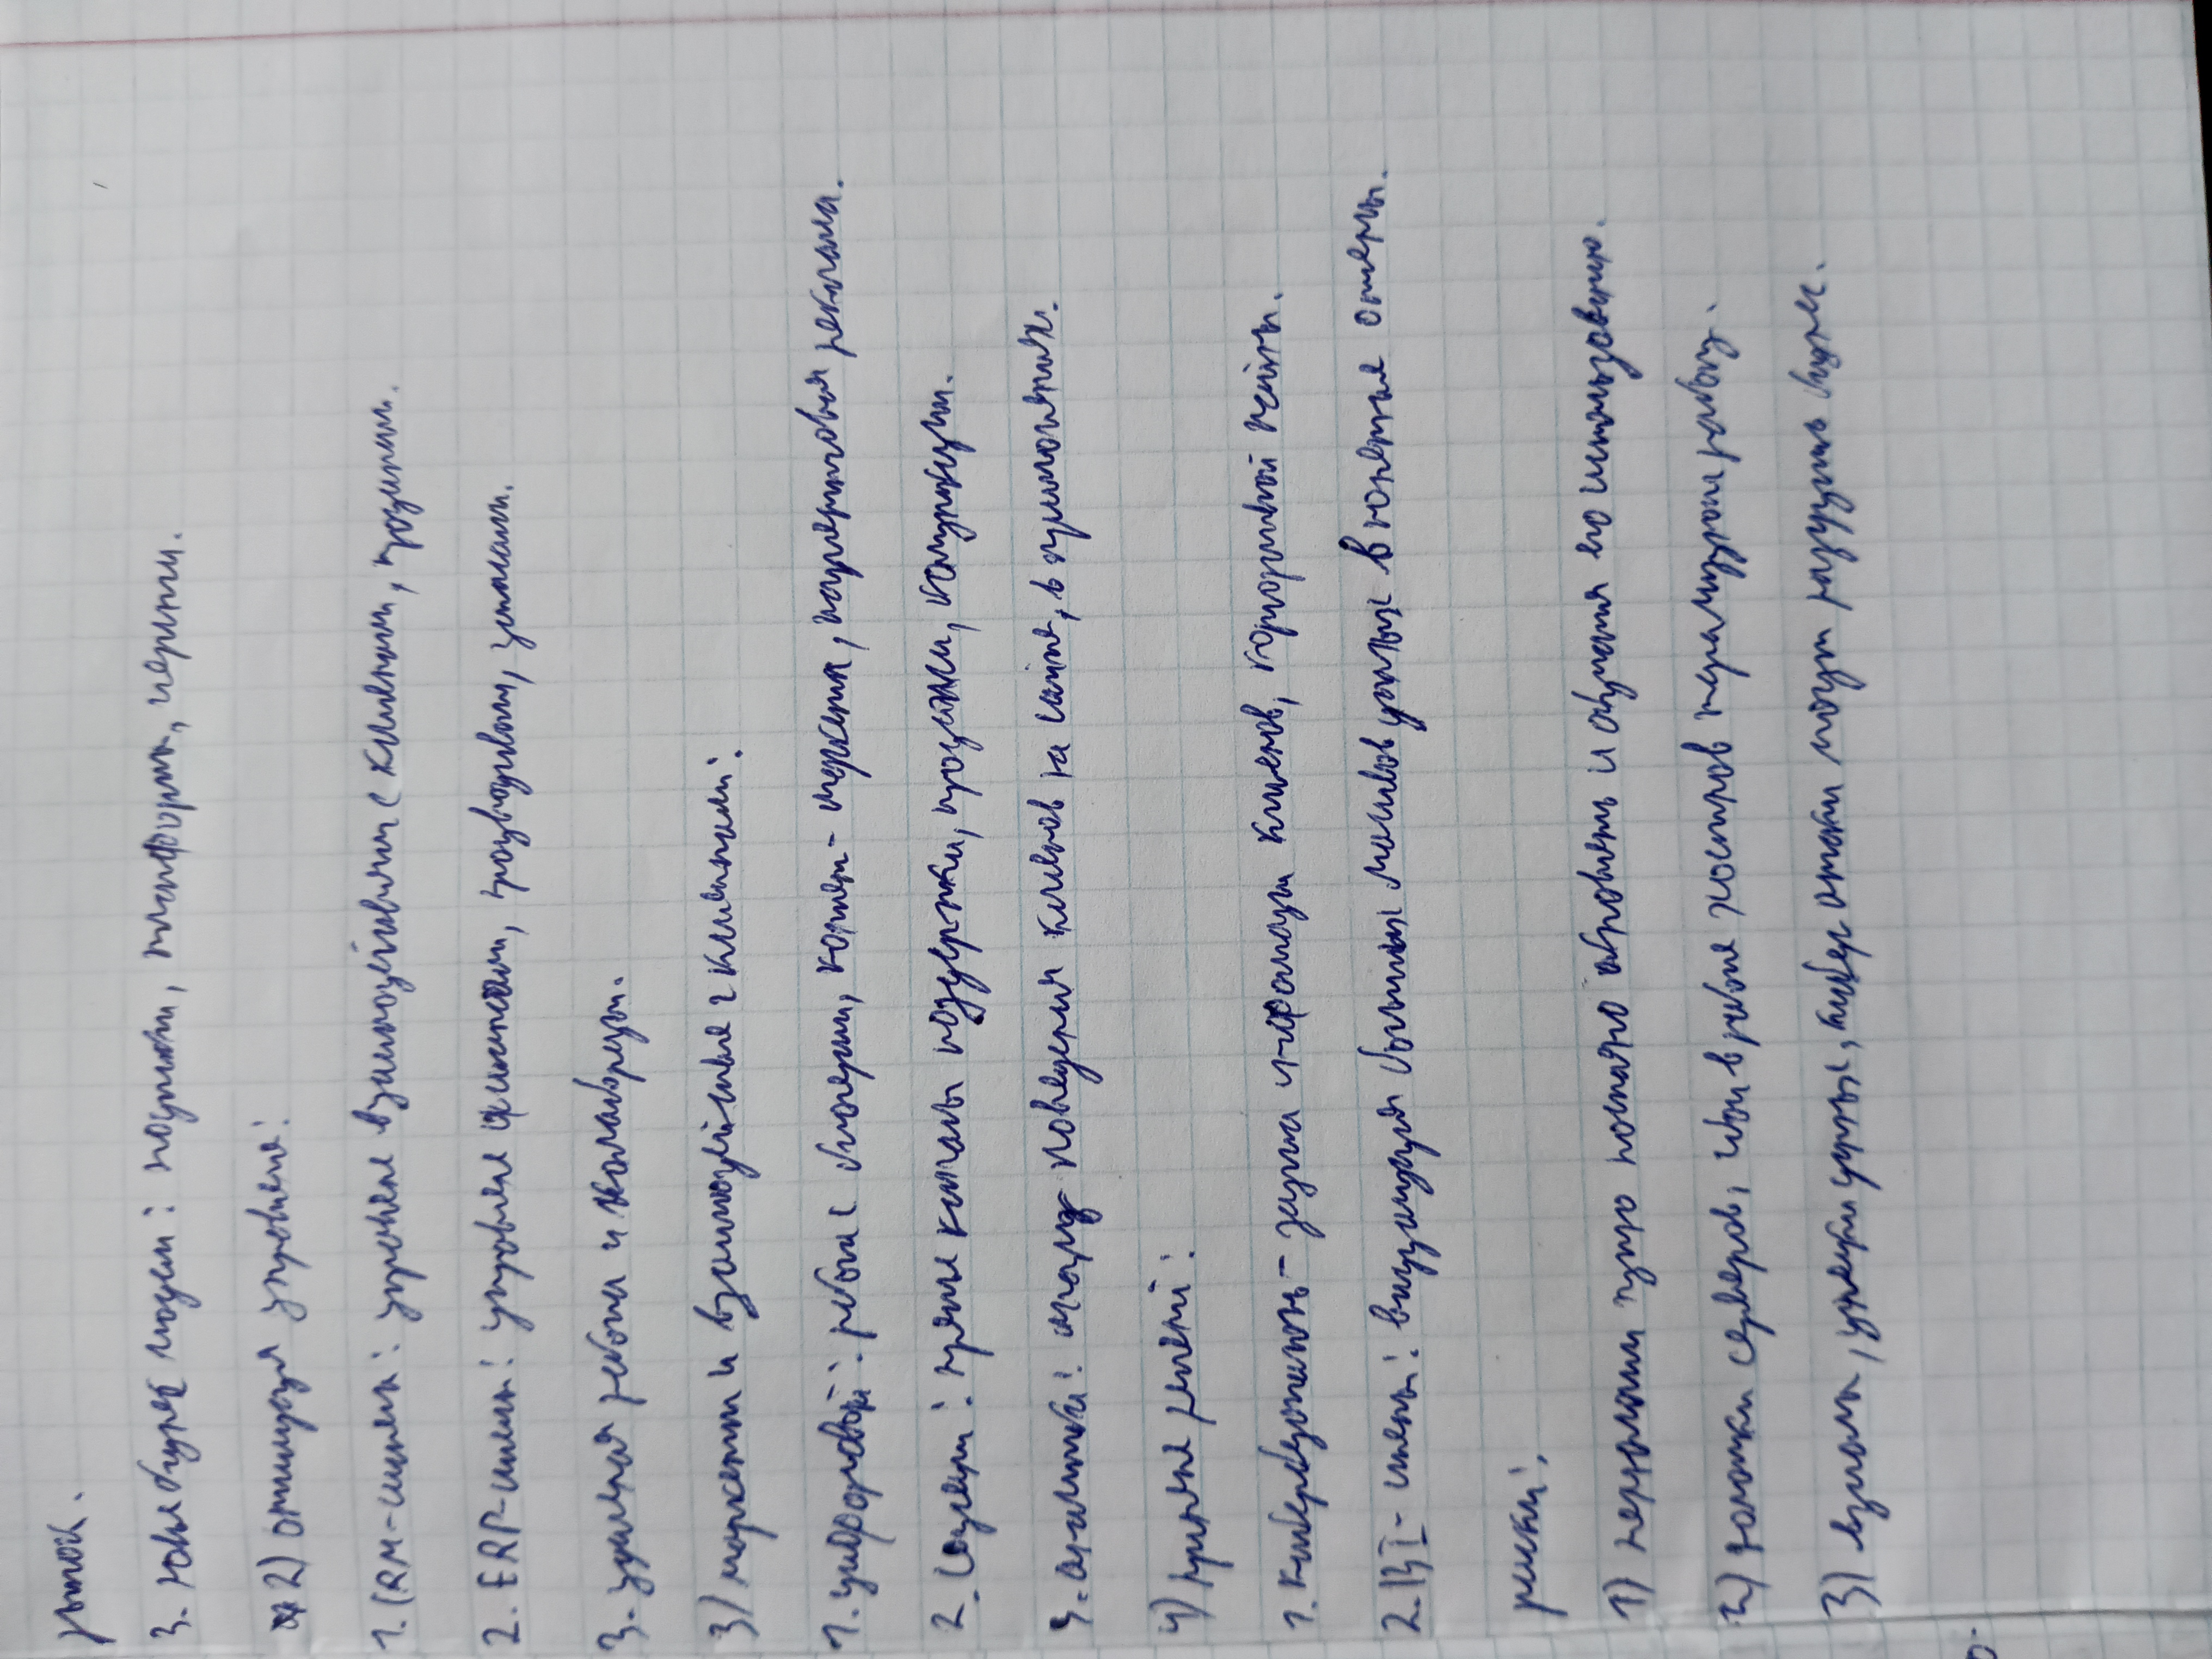 рынок.
3. новые бизнес модели: подписки, платформы, сервисы.
2) оптимизация управления:
1. CRM-системы: управление взаимодействиями с клиентами, продажами.
2. ERP-системы: управление финансами, производством, запасами.
3. удаленная работа и коллаборация.
3) маркетинг и взаимодействие с клиентами:
1. цифровой: работа с блогерами, контент-маркетинг, таргетинговая реклама.
2. соцсети: прямые каналы поддержки, продажи, коммуникации.
3. аналитика: анализ поведения клиентов на сайте, в приложениях.
4) принятие решений:
1. Кибербезопасность - защита информации клиентов, корпоративной тайны.
2. BI-системы: визуализация больших массивов данных в понятные отчеты.
риски:
1) персонал нужно постоянно обновлять и обучать его использованию.
2) поломки серверов, сбои в работе хостингов парализуют работу.
3) взломы, утечки данных, кибер атаки могут разрушить бизнес.